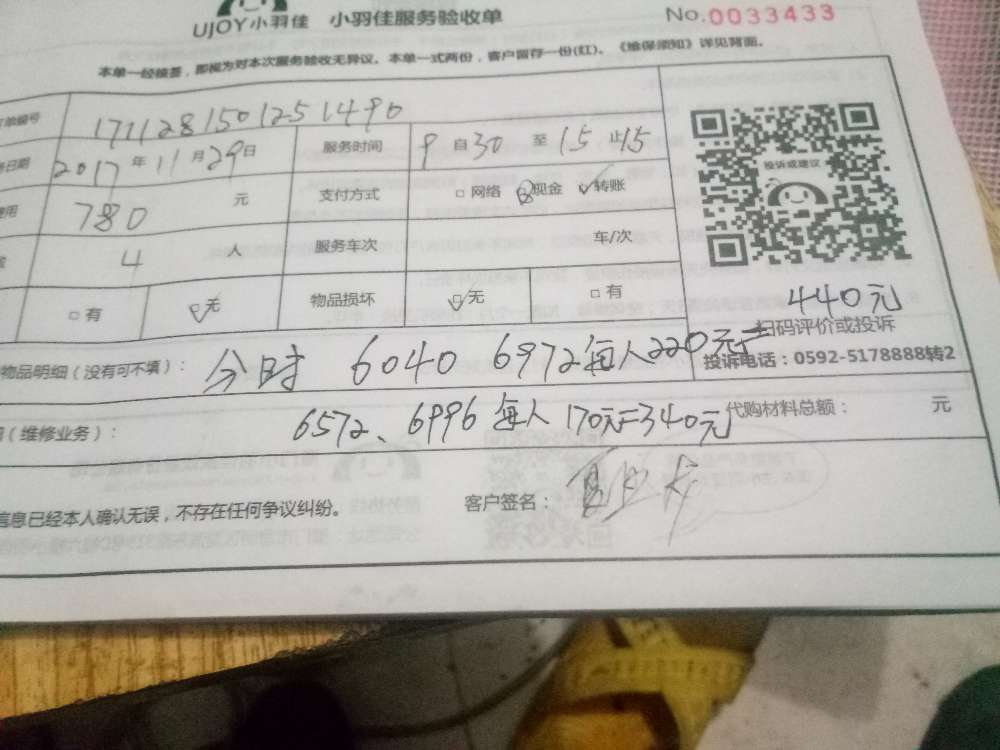 UJOY小羽佳 小羽佳服务验收单 No.0033433
本单一经核签，即视为对本次服务验收无异议。本单一式两份，客户留存一份(红)。《维保须知》详见背面。
单编号 1711281501251490
日期 2017年11月29日 服务时间 9自30至15止15
用 780 元 支付方式 网络 现金 转账
4 人 服务车次 车/次
有 无 物品损坏 无 有
投诉或建议
440元
扫码评价或投诉
投诉电话：0592-5178888转2
物品明细（没有可不填）： 分时 6040 6972每人220元=
（维修业务）： 6572、6996每人170元=340元 代购材料总额： 元
信息已经本人确认无误，不存在任何争议纠纷。 客户签名：